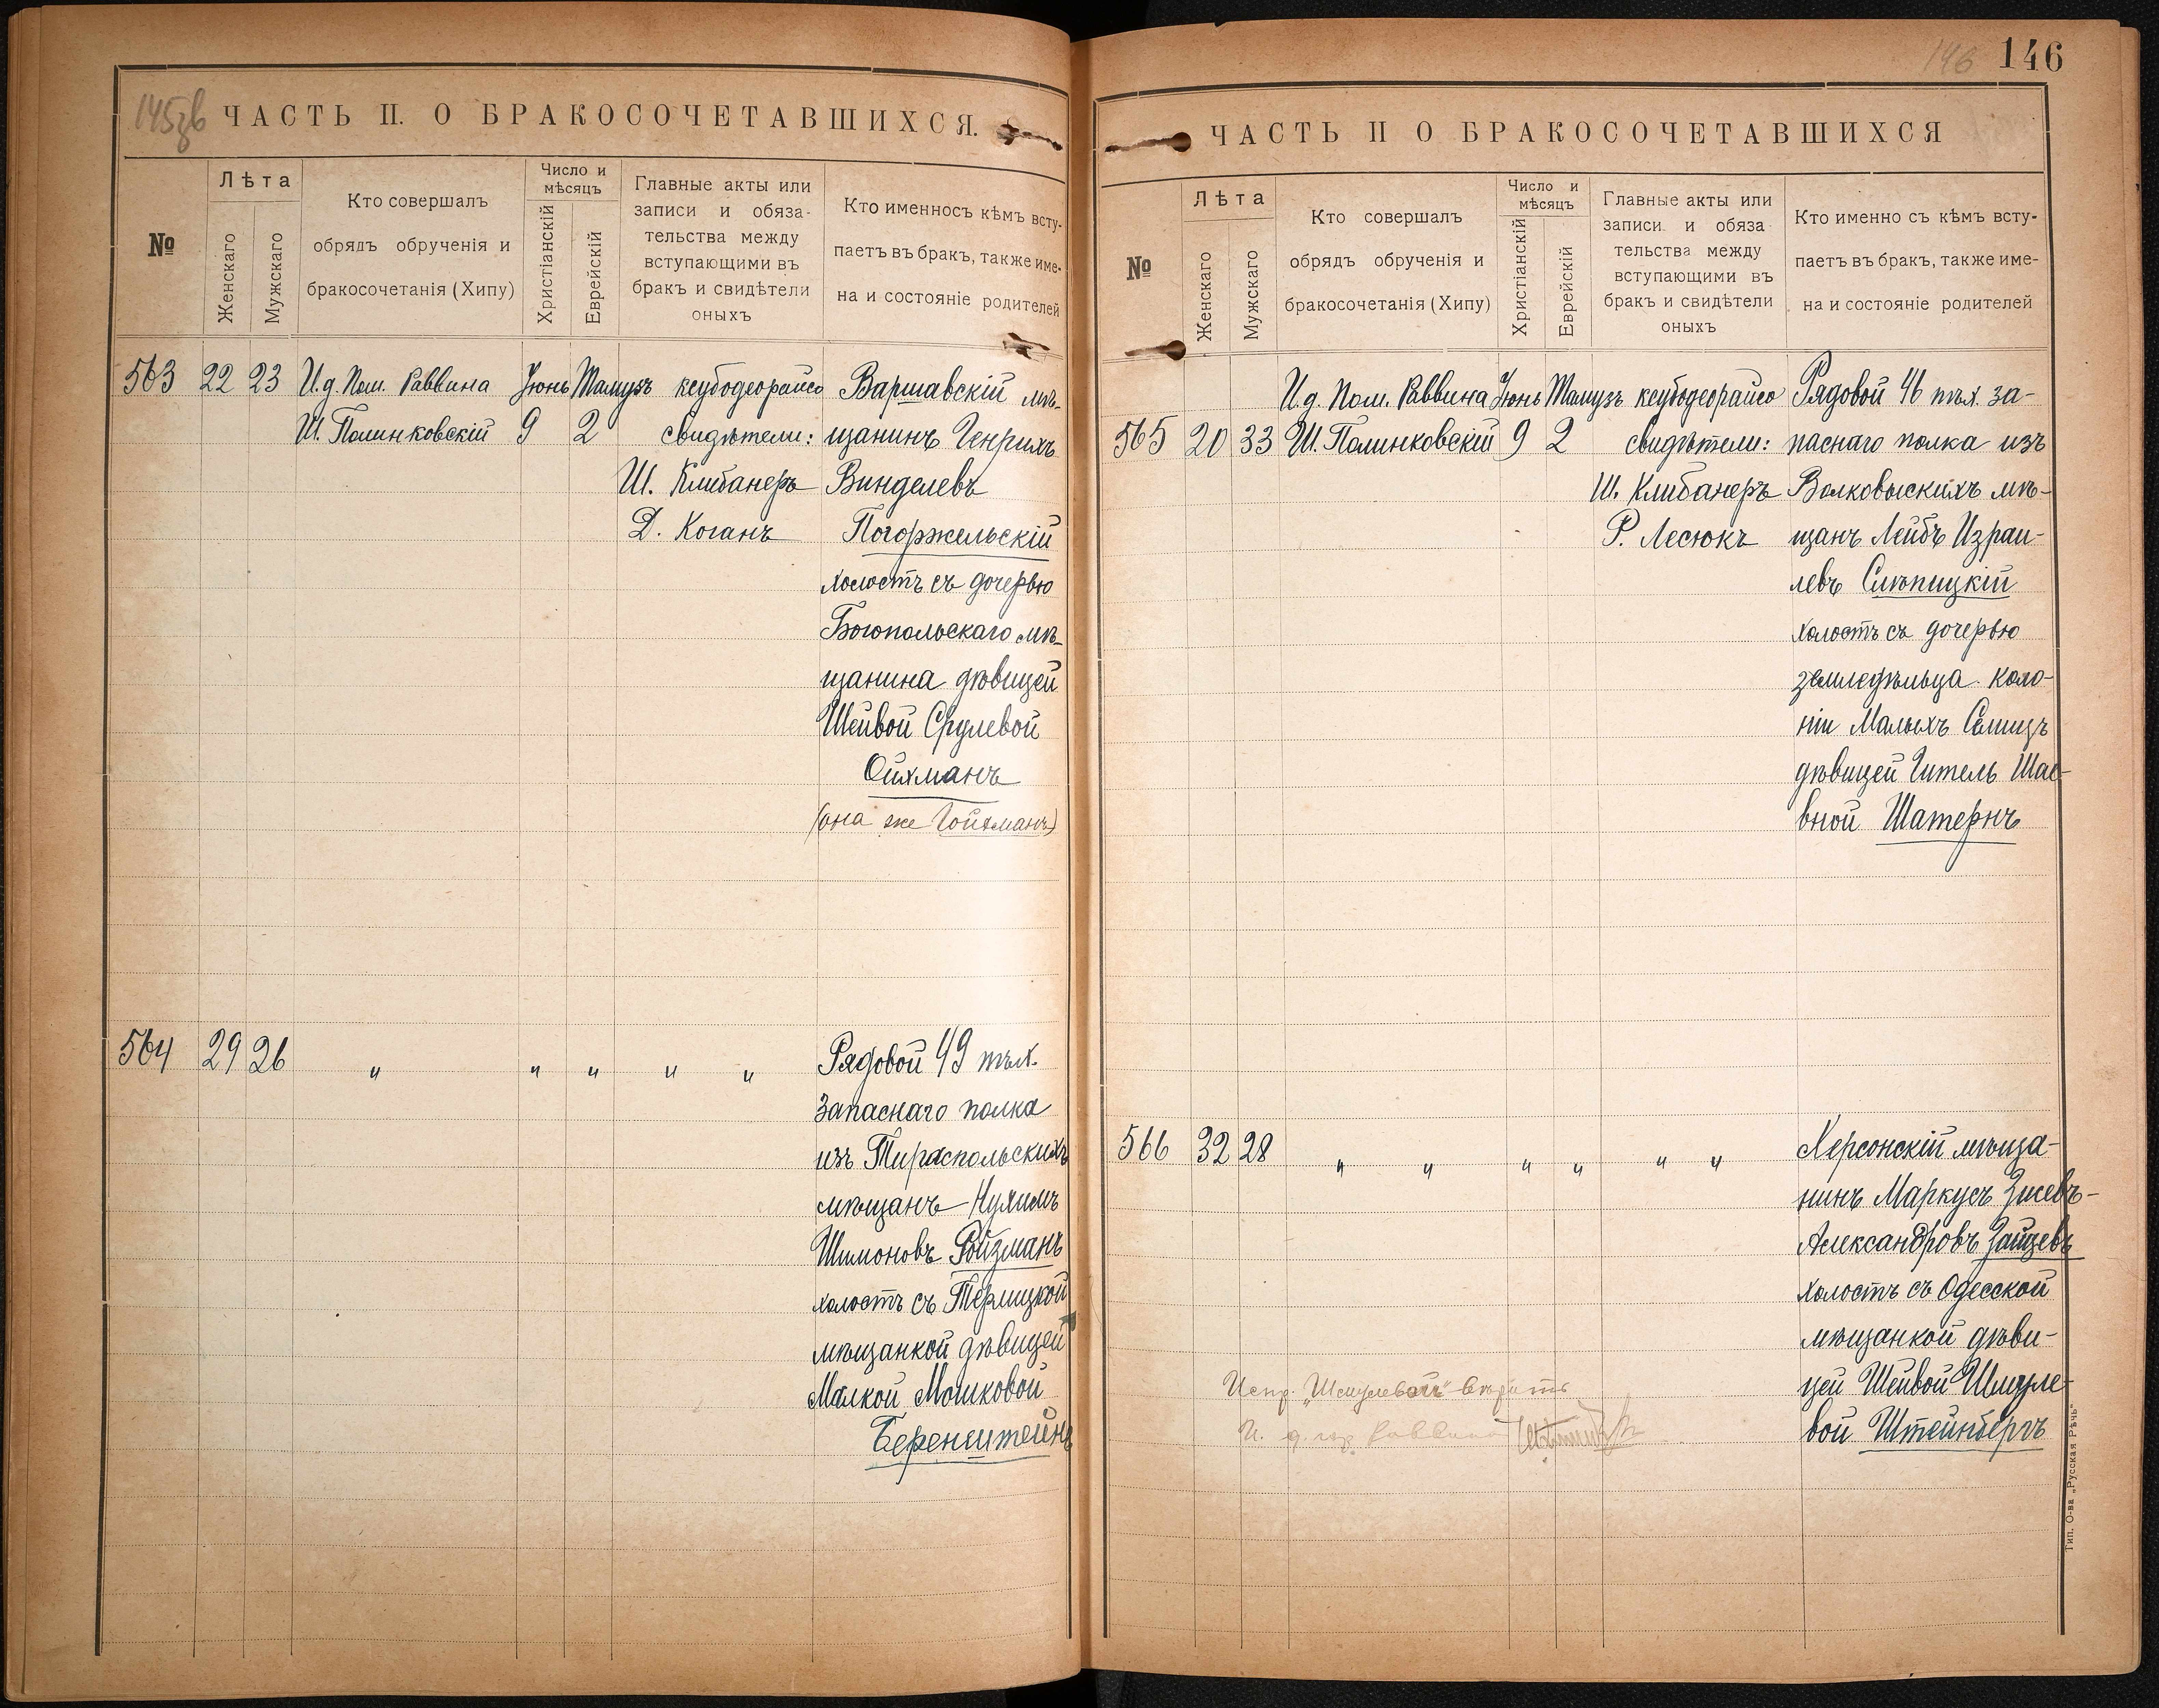 145зв
ЧАСТЬ II. О БРАКОСОЧЕТАВШИХСЯ.
№
Лѣта
Женскаго
Мужскаго
Кто совершалъ
обрядъ обрученія и
бракосочетанія (Хипу)
Число и
мѣсяцъ
Христіанскій
Еврейскій
Главные акты или
записи и обяза-
тельства между
вступающими въ
бракъ и свидѣтели
оныхъ
Кто именносъ кѣмъ всту-
паетъ въ бракъ, также име-
на и состояніе родителей
563 22 23 И.д. Пом. Раввина Іюнь Тамузъ кеубодеорайсо Варшавскій мѣ-
Ш. Полинковскій 9 2 свидѣтели: щанинъ Генрихъ
Ш. Клибанеръ Винделевъ
Д. Коганъ Погоржельскій
холостъ съ дочерью
Богопольскаго мѣ-
щанина дѣвицей
Шейвой Срулевой
Ойхманъ
(она же Гойхманъ)
564 29 26 " " " " " Рядовой 49 пѣх.
Запаснаго полка
изъ Тираспольскихъ
мѣщанъ Нухимъ
Шимоновъ Ройзманъ
холостъ съ Терлицкой
мѣщанкой дѣвицей
Малкой Мошковой
Беренштейнъ
146 146
ЧАСТЬ II О БРАКОСОЧЕТАВШИХСЯ
№
Лѣта
Женскаго
Мужскаго
Кто совершалъ
обрядъ обрученія и
бракосочетанія (Хипу)
Число и
мѣсяцъ
Христіанскій
Еврейскій
Главные акты или
записи и обяза
тельства между
вступающими въ
бракъ и свидѣтели
оныхъ
Кто именно съ кѣмъ всту-
паетъ въ бракъ, также име-
на и состояніе родителей
И.д. Пом. Раввина Іюнь Тамузъ кеубодеорайсо Рядовой 46 пѣх. за-
565 20 33 Ш. Полинковскій 9 2 свидѣтели: паснаго полка изъ
Ш. Клибанеръ Волковыскихъ мѣ-
Р. Лесюкъ щанъ Лейбъ Израи-
левъ Слѣпицкій
холостъ съ дочерью
земледѣльца коло-
ніи Малыхъ Селищъ
дѣвицей Гитель Шае-
вной Шатернъ
566 32 28 " " " " " " Херсонскій мѣща-
нинъ Маркусъ Зисевъ-
Александровъ Зайцевъ
холостъ съ Одесской
мѣщанкой дѣви-
цей Шейвой Шмуле-
вой Штейнбергъ
Испр. „Шмулевой" вѣрить
И. д. Раввина
Тип. О-ва „Русская Рѣчь"